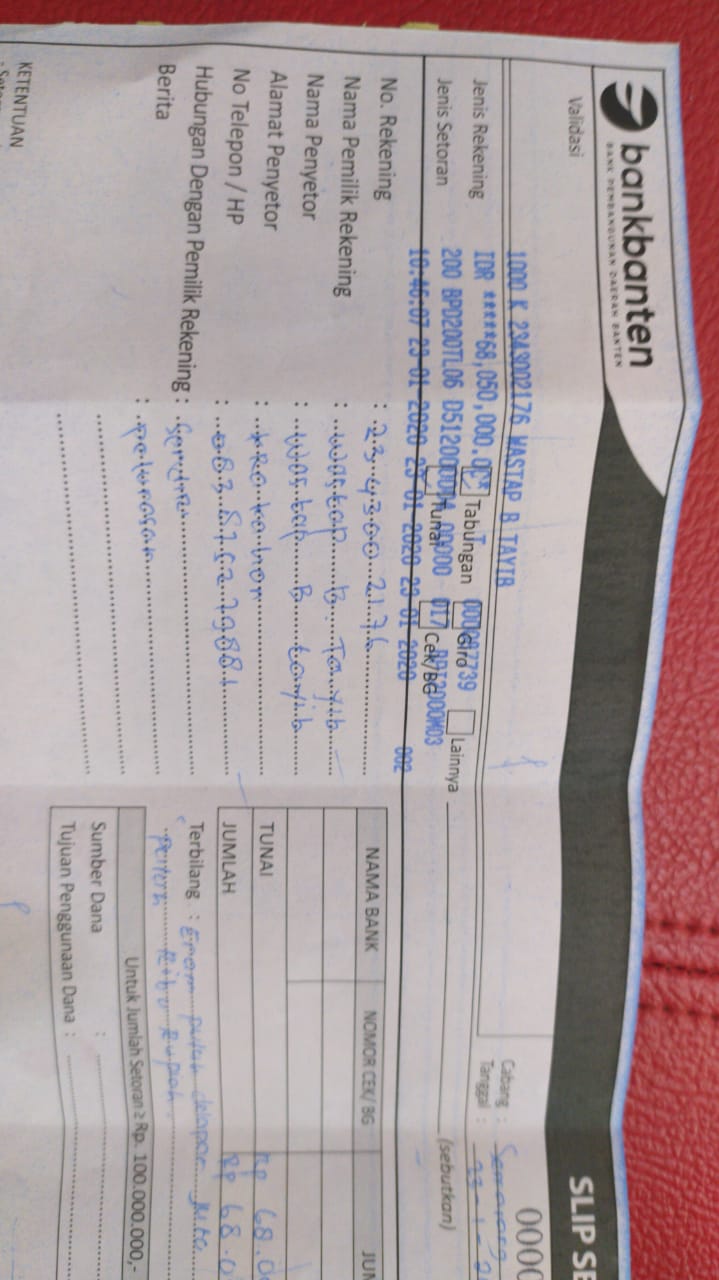 bankbanten
BANK PEMBANGUNAN DAERAH BANTEN
SLIP SE
0000
Validasi
1000 K 2343002176 WASTAP B TAYIB
IDR *****68,050,000.00
200 BPD200TL06 D5120
10.46.07 23-01-2020 23-01-2020 23-01-2020 002
Cabang :
Tanggal :
Jenis Rekening
Tabungan
Giro
Lainnya
(sebutkan)
Jenis Setoran
Tunai
Cek/BG
No. Rekening : 2343002176
Nama Pemilik Rekening : Wastap B. Tayib
Nama Penyetor : Wastap B tayib
Alamat Penyetor :
No Telepon / HP :
Hubungan Dengan Pemilik Rekening : Sendiri
Berita : Pelunasan
NAMA BANK
NOMOR CEK/ BG
JUM
TUNAI Rp 68.0
JUMLAH Rp 68.0
Terbilang : Enam puluh delapan Juta
Ribu Rupiah
Untuk Jumlah Setoran ≥ Rp. 100.000.000,-
Sumber Dana :
Tujuan Penggunaan Dana :
KETENTUAN